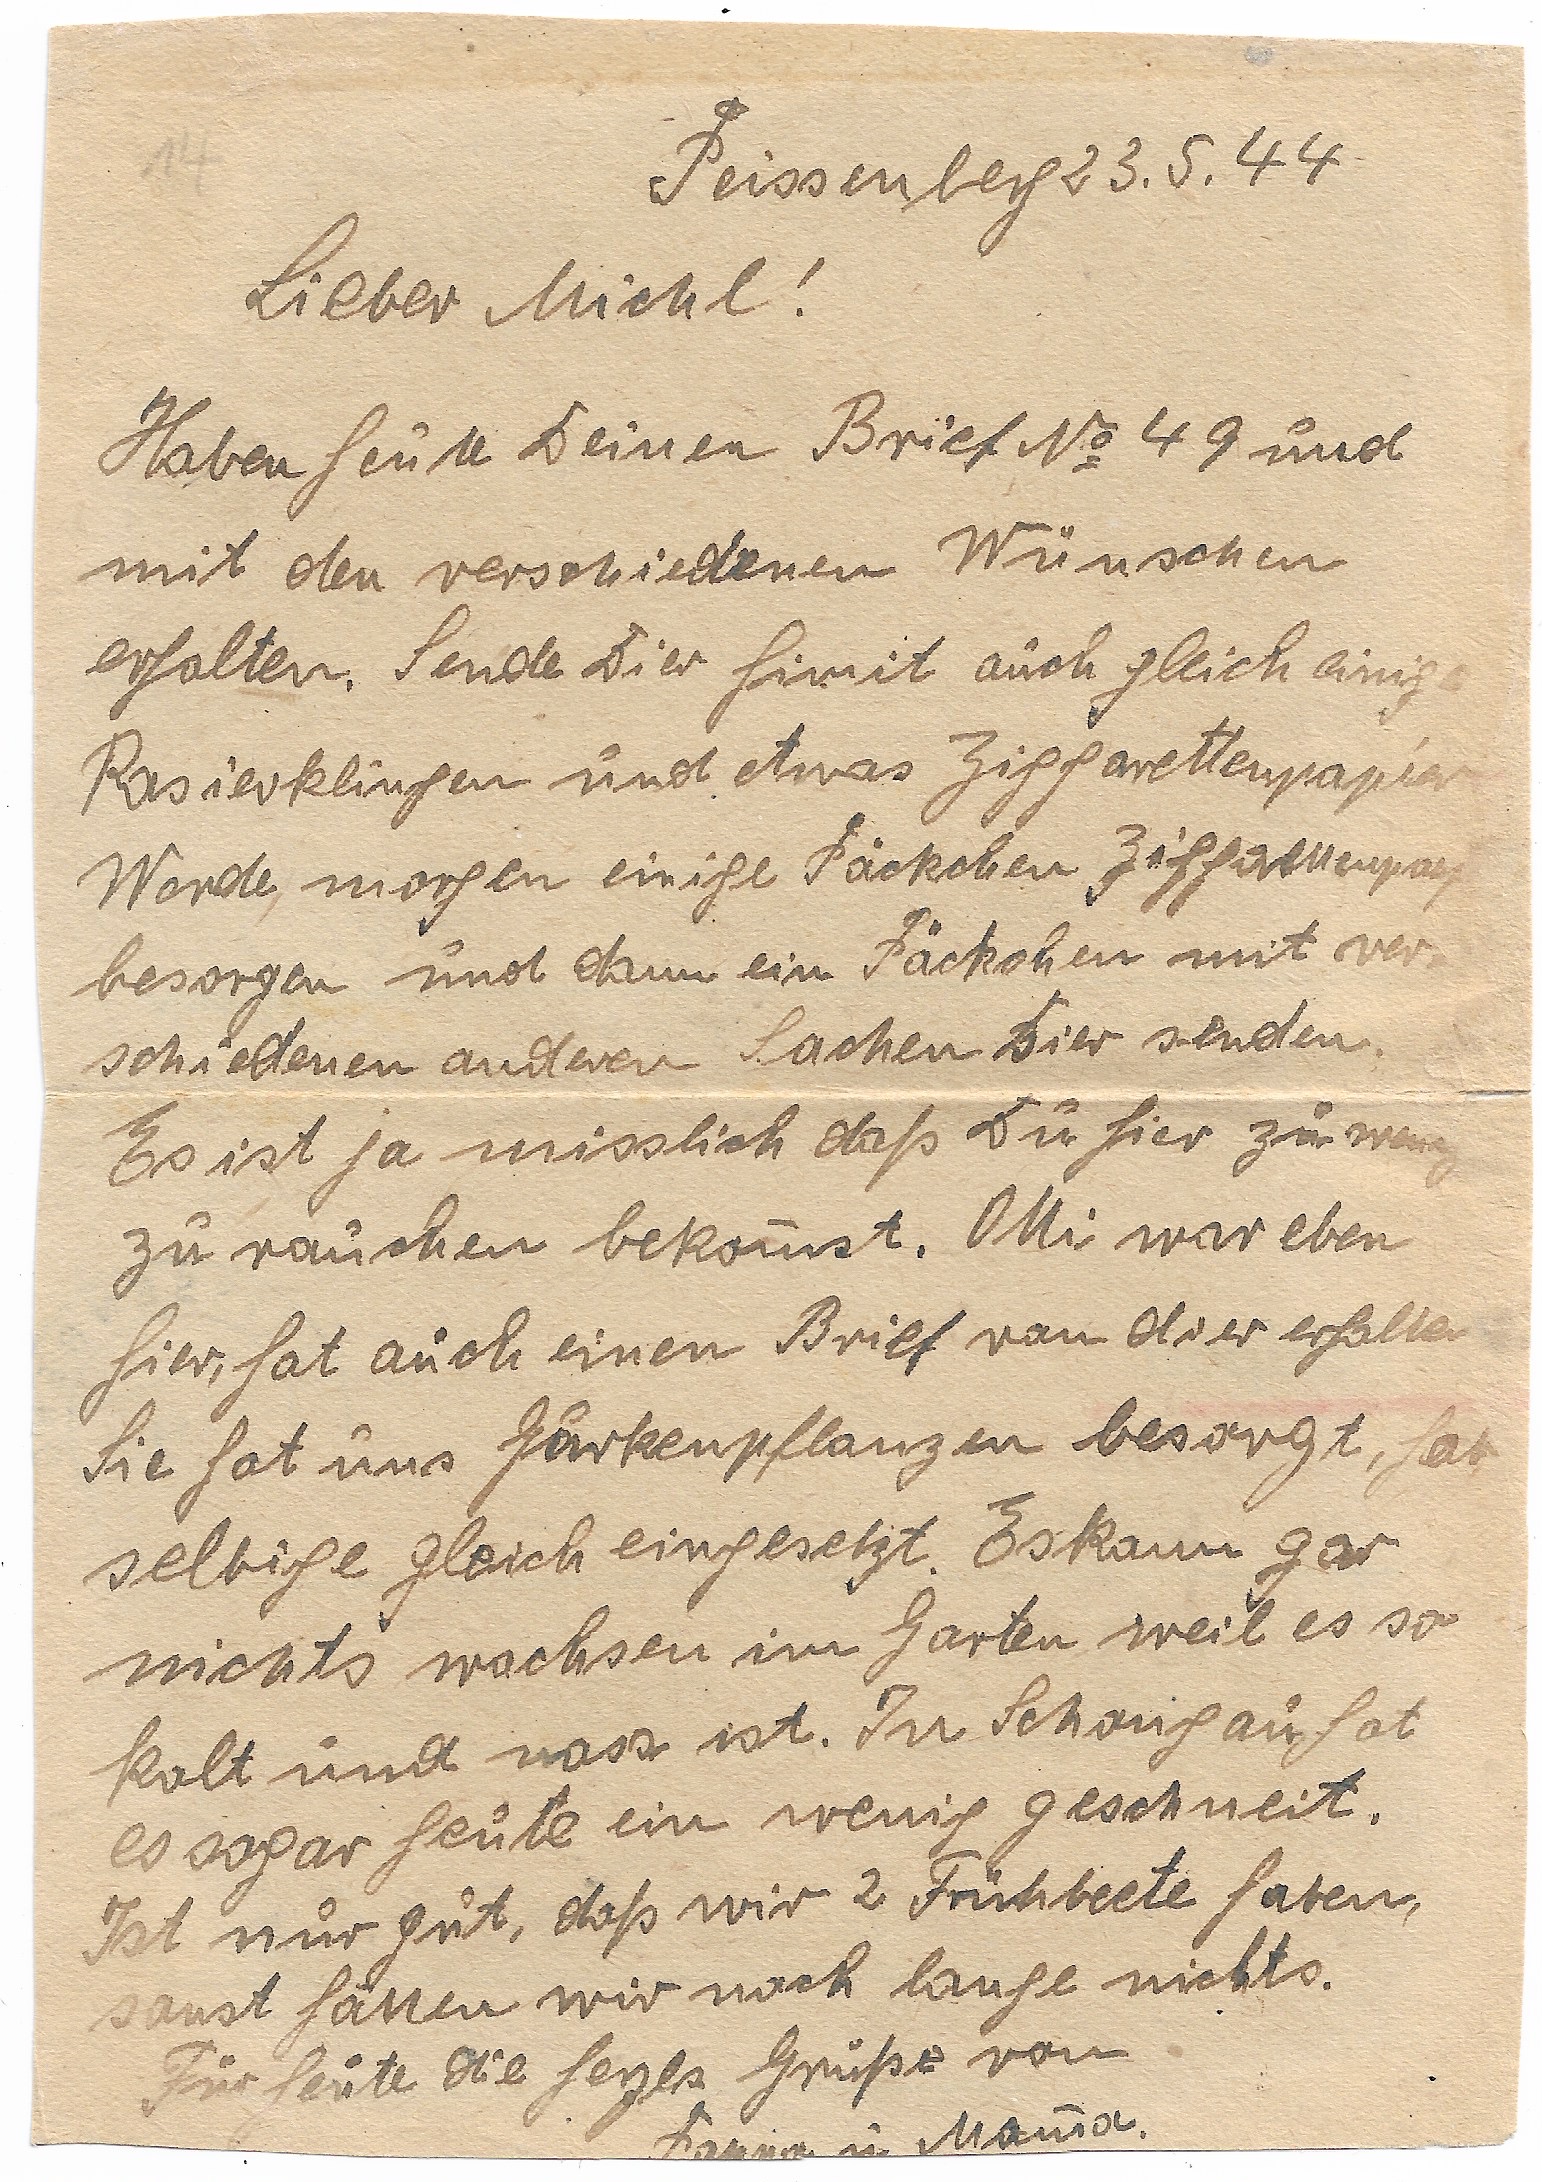 14
Peissenberg 23.5.44
Lieber Michl!
Haben heute Deinen Brief No 49 und
mit den verschiedenen Wünschen
erhalten. Sende Dier hirmit auch gleich einige
Rasierklingen und etwas Ziggarettenpapier
Werde, morgen einige Päckchen Ziggarettenpap
besorgen und dann ein Päckchen mit ver-
schiedenen anderen Sachen Dier senden.
Es ist ja misslich daß Du hier zu wenig
zu rauchen bekom̄st. Otti war eben
hier, hat auch einen Brief von dier erhalten
Sie hat uns Gurkenpflanzen besorgt, hab
selbige gleich eingesetzt. Es kann gar
nichts wachsen im Garten weil es so
kalt und nass ist. In Schongau hat
es sogar heute ein wenig geschneit.
Ist nur gut, daß wir 2 Frühbeete haben,
sonst hätten wir noch lange nichts.
Für heute die herzls Grüße von
Pappa u Mam̄a.